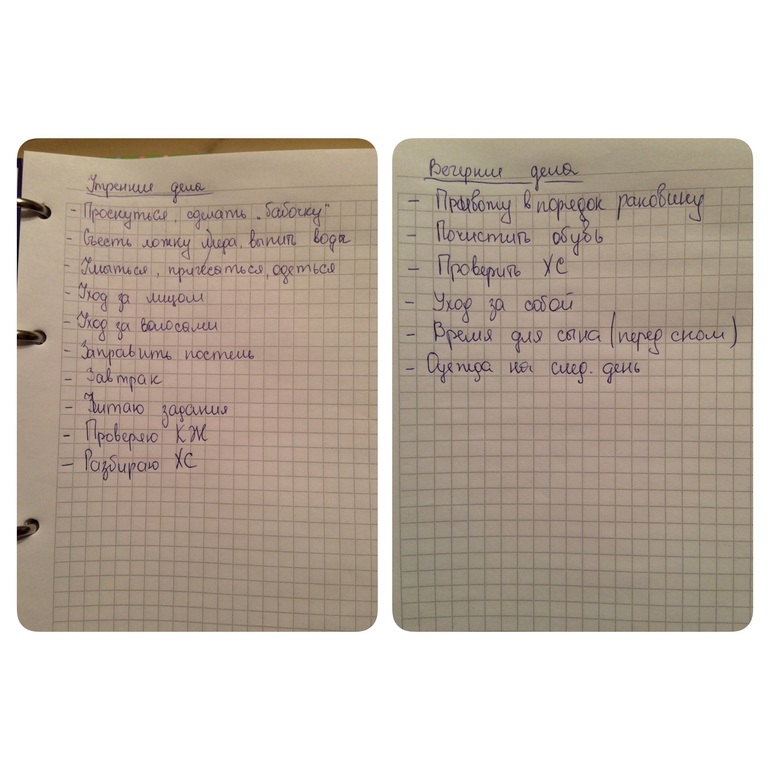 Утренние дела
- Проснуться, сделать „бабочку"
- Съесть ложку мёда, выпить воды
- Умыться, причесаться, одеться
- Уход за лицом
- Уход за волосами
- Заправить постель
- Завтрак
- Читаю задания
- Проверяю КЖ
- Разбираю ХС
Вечерние дела
- Привожу в порядок раковину
- Почистить обувь
- Проверить ХС
- Уход за собой
- Время для сына (перед сном)
- Одежда на след. день